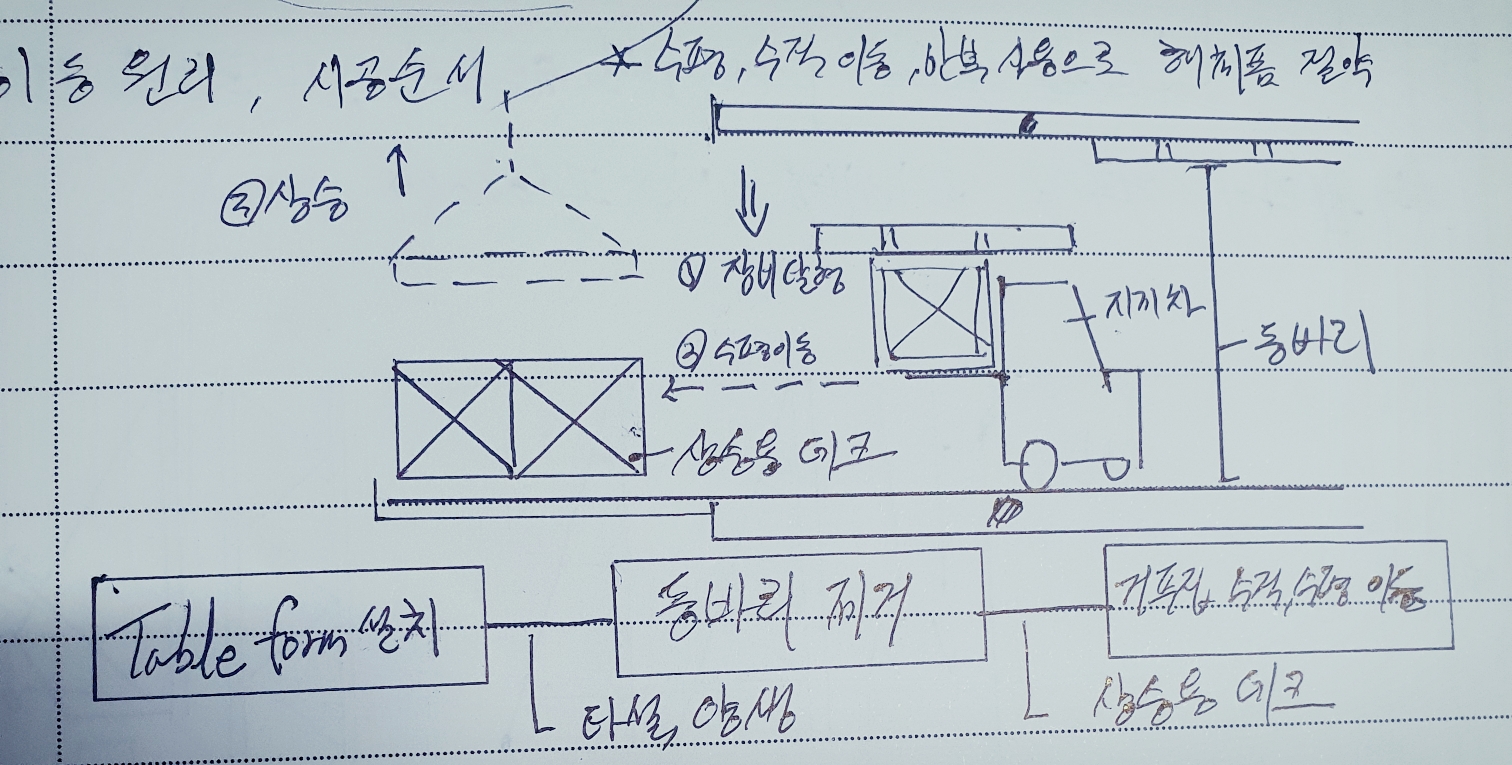 이동 원리, 시공순서
* 수평, 수직 이동, 반복 사용으로 해체품 절약
② 상승
① 장비탈형
지게차
동바리
③ 수평이동
상승용 데크
Table form 설치
동바리 제거
거푸집 수직, 수평 이동
타설, 양생
상승용 데크